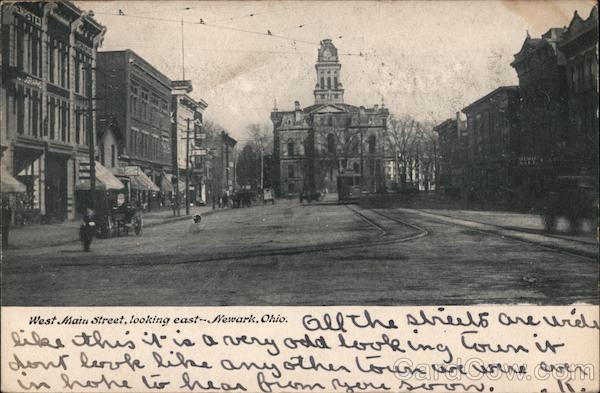 West Main Street, looking east--Newark, Ohio.
All the streets are wide
like this it is a very odd looking town it
dont look like any other town
in hope to hear from you soon. K.
CardCow.com